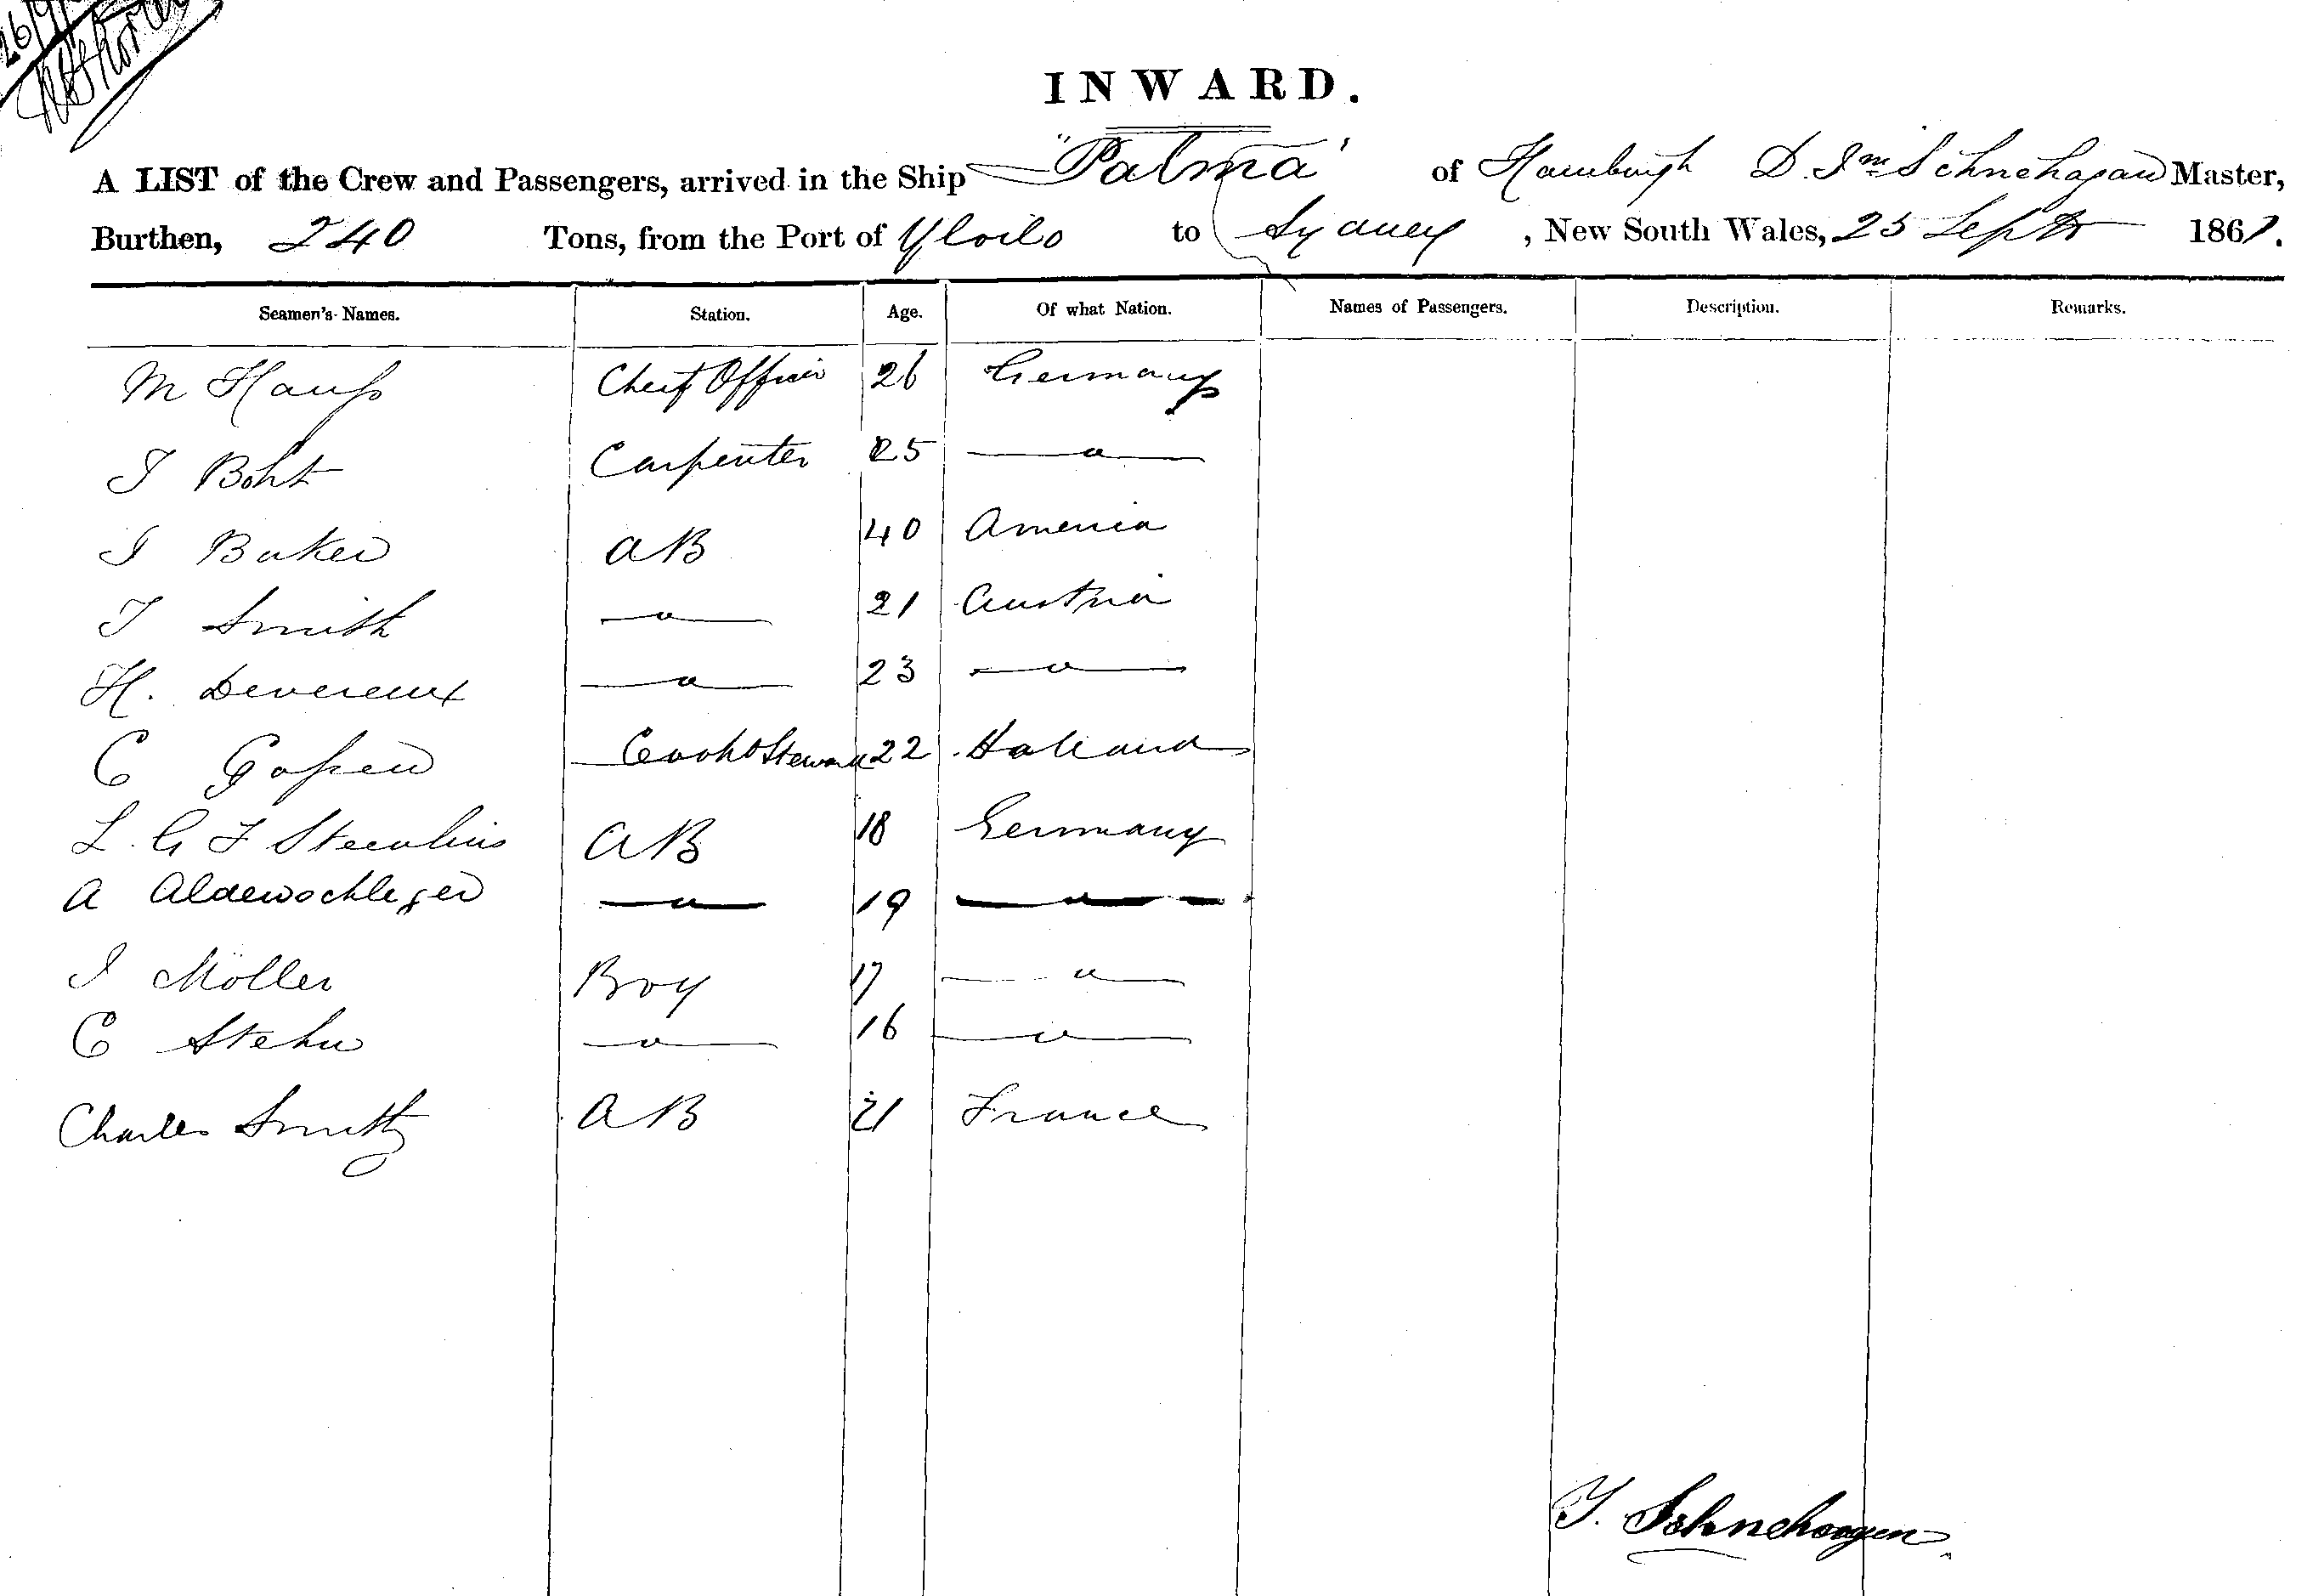 26/9/
INWARD.
A LIST of the Crew and Passengers, arrived in the Ship "Palma" of Hamburgh D. Schnehagen Master,
Burthen, 240 Tons, from the Port of Yloilo to Sydney, New South Wales, 25 Septr 1867.
Seamen's Names. Station. Age. Of what Nation. Names of Passengers. Description. Remarks.
M Haufs Cheif Officer 26 Germany
J Boht Carpenter 25 — " —
J Baker AB 40 America
J Smith — " — 21 Austria
H. Devereux — " — 23 — " —
C Cook & Steward 22 Holland
L. G F AB 18 Germany
A — " — 19 — " —
J Möller Boy 17 — " —
C Stehn — " — 16 — " —
Charles Smith AB 21 France
J. Schnehagen